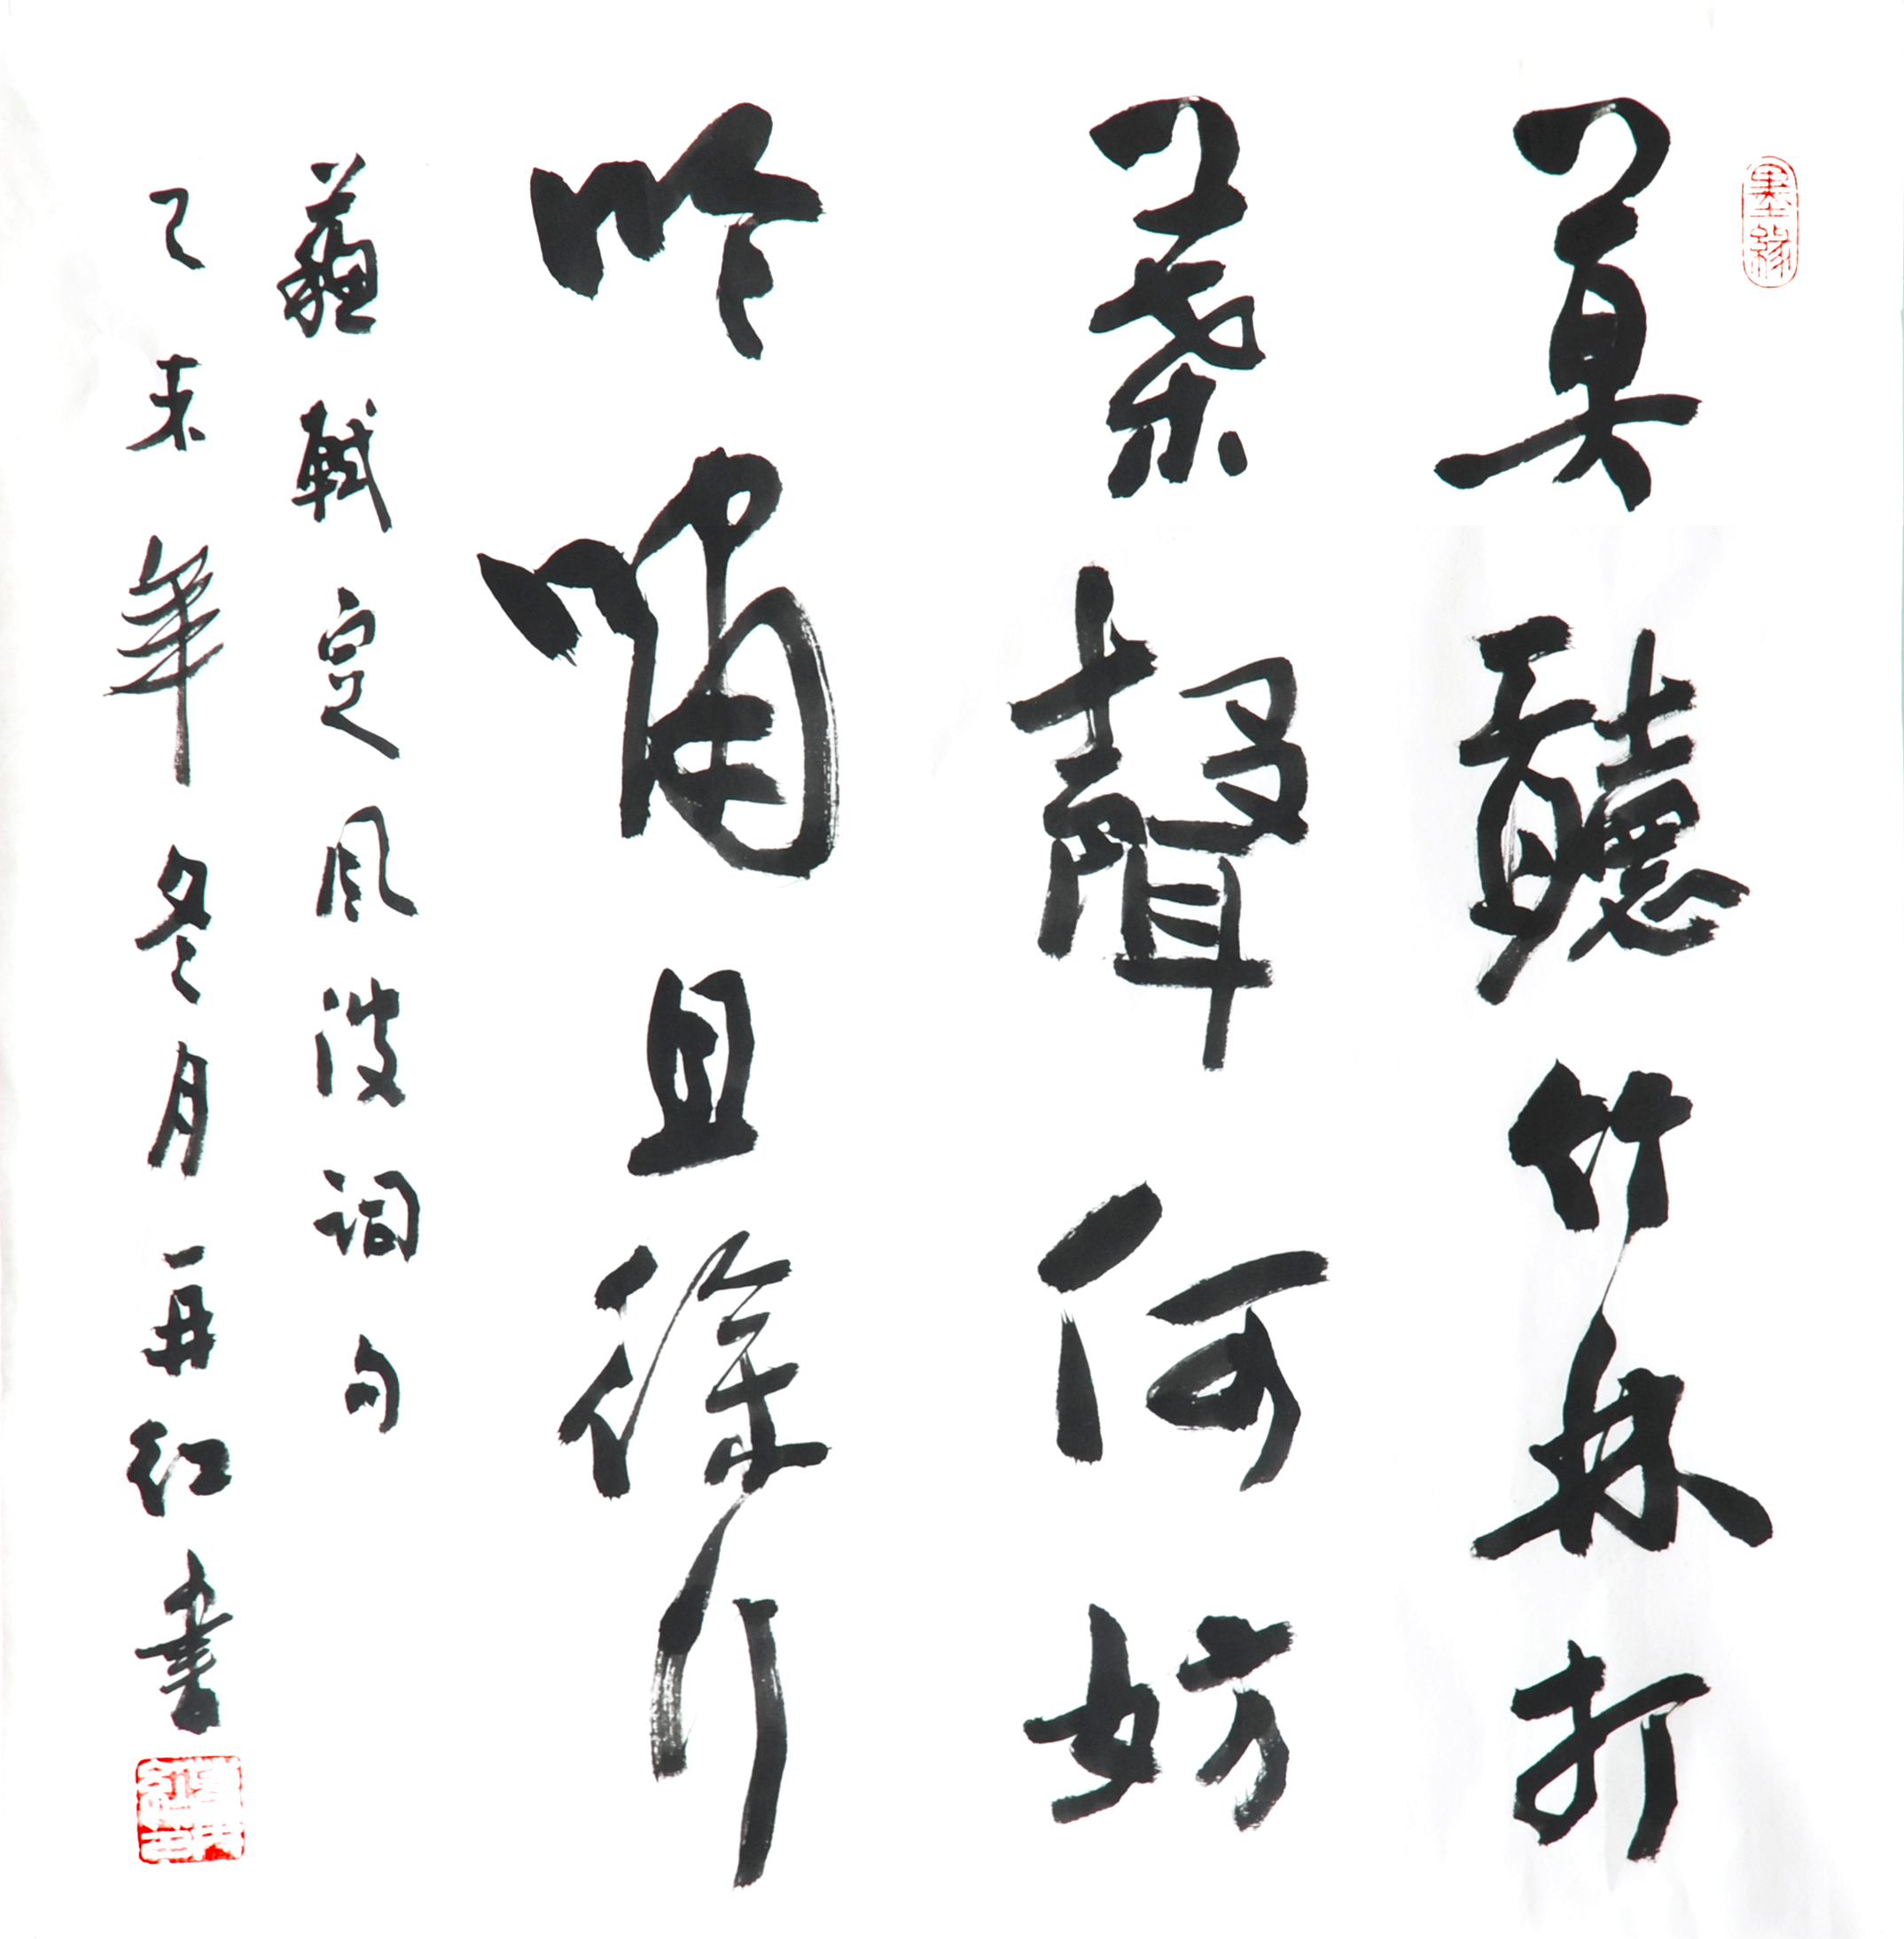 墨緣
莫聽竹林打
葉聲何妨
吟嘯且徐行
蘇軾定風波詞句
乙未年冬月再红書